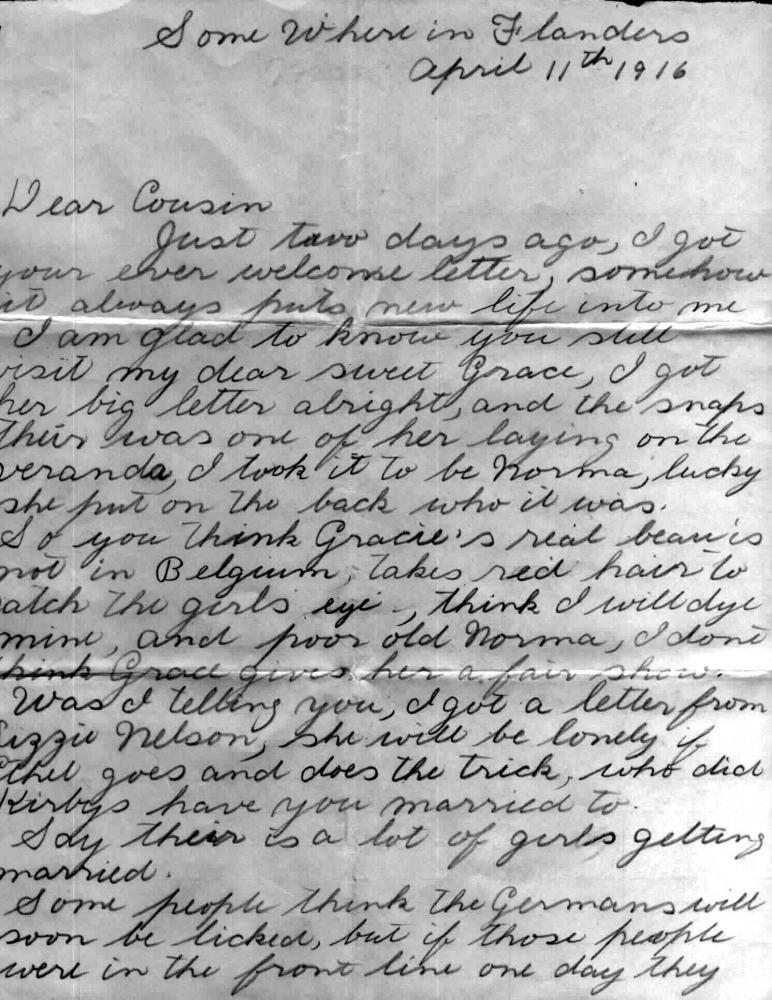 Some Where in Flanders
April 11th 1916
Dear Cousin
Just two days ago, I got
your ever welcome letter, somehow
it always puts new life into me
I am glad to know you still
visit my dear sweet Grace, I got
her big letter alright, and the snaps
their was one of her laying on the
veranda, I took it to be Norma, lucky
she put on the back who it was.
So you think Gracie's real beau is
not in Belgium, takes red hair to
catch the girls eye, think I will dye
mine, and poor old Norma, I dont
think Grace gives her a fair show.
Was I telling you, I got a letter from
Lizzie Nelson, she will be lonely if
Ethel goes and does the trick, who did
Kirbys have you married to.
Say their is a lot of girls getting
married.
Some people think the Germans will
soon be licked, but if those people
were in the front line one day they